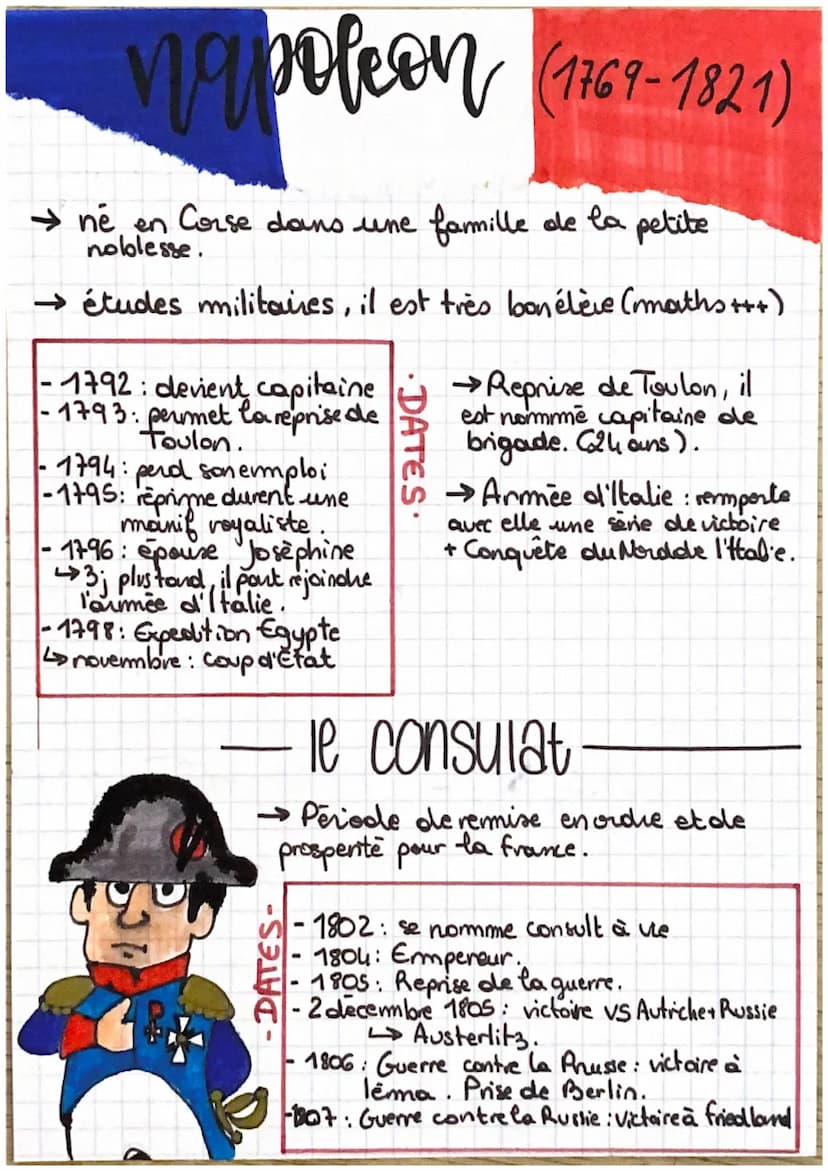 napoleon (1769-1821)
→ né en Corse dans une famille de la petite
noblesse.
→ études militaires, il est très bon élève (maths +++)
- 1792 : devient capitaine
- 1793 : permet la reprise de
Toulon.
- 1794 : perd son emploi
- 1795 : réprime durent une
manif royaliste.
- 1796 : épouse Josèphine
↳ 3j plus tard, il part rejoindre
l'armée d'Italie.
- 1798 : Expedition Egypte
↳ novembre : coup d'État
• DATES •
→ Reprise de Toulon, il
est nommé capitaine de
brigade. (24 ans).
→ Armée d'Italie : remporte
avec elle une série de victoire
+ Conquête du Nord de l'Italie.
le consulat
→ Période de remise en ordre et de
prosperité pour la france.
- DATES -
- 1802 : se nomme consult à vie
- 1804 : Empereur.
- 1805 : Reprise de la guerre.
- 2 décembre 1805 : victoire VS Autriche + Russie
↳ Austerlitz.
- 1806 : Guerre contre la Prusse : victoire à
Iéna. Prise de Berlin.
- 1807 : Guerre contre la Russie : victoire à friedland